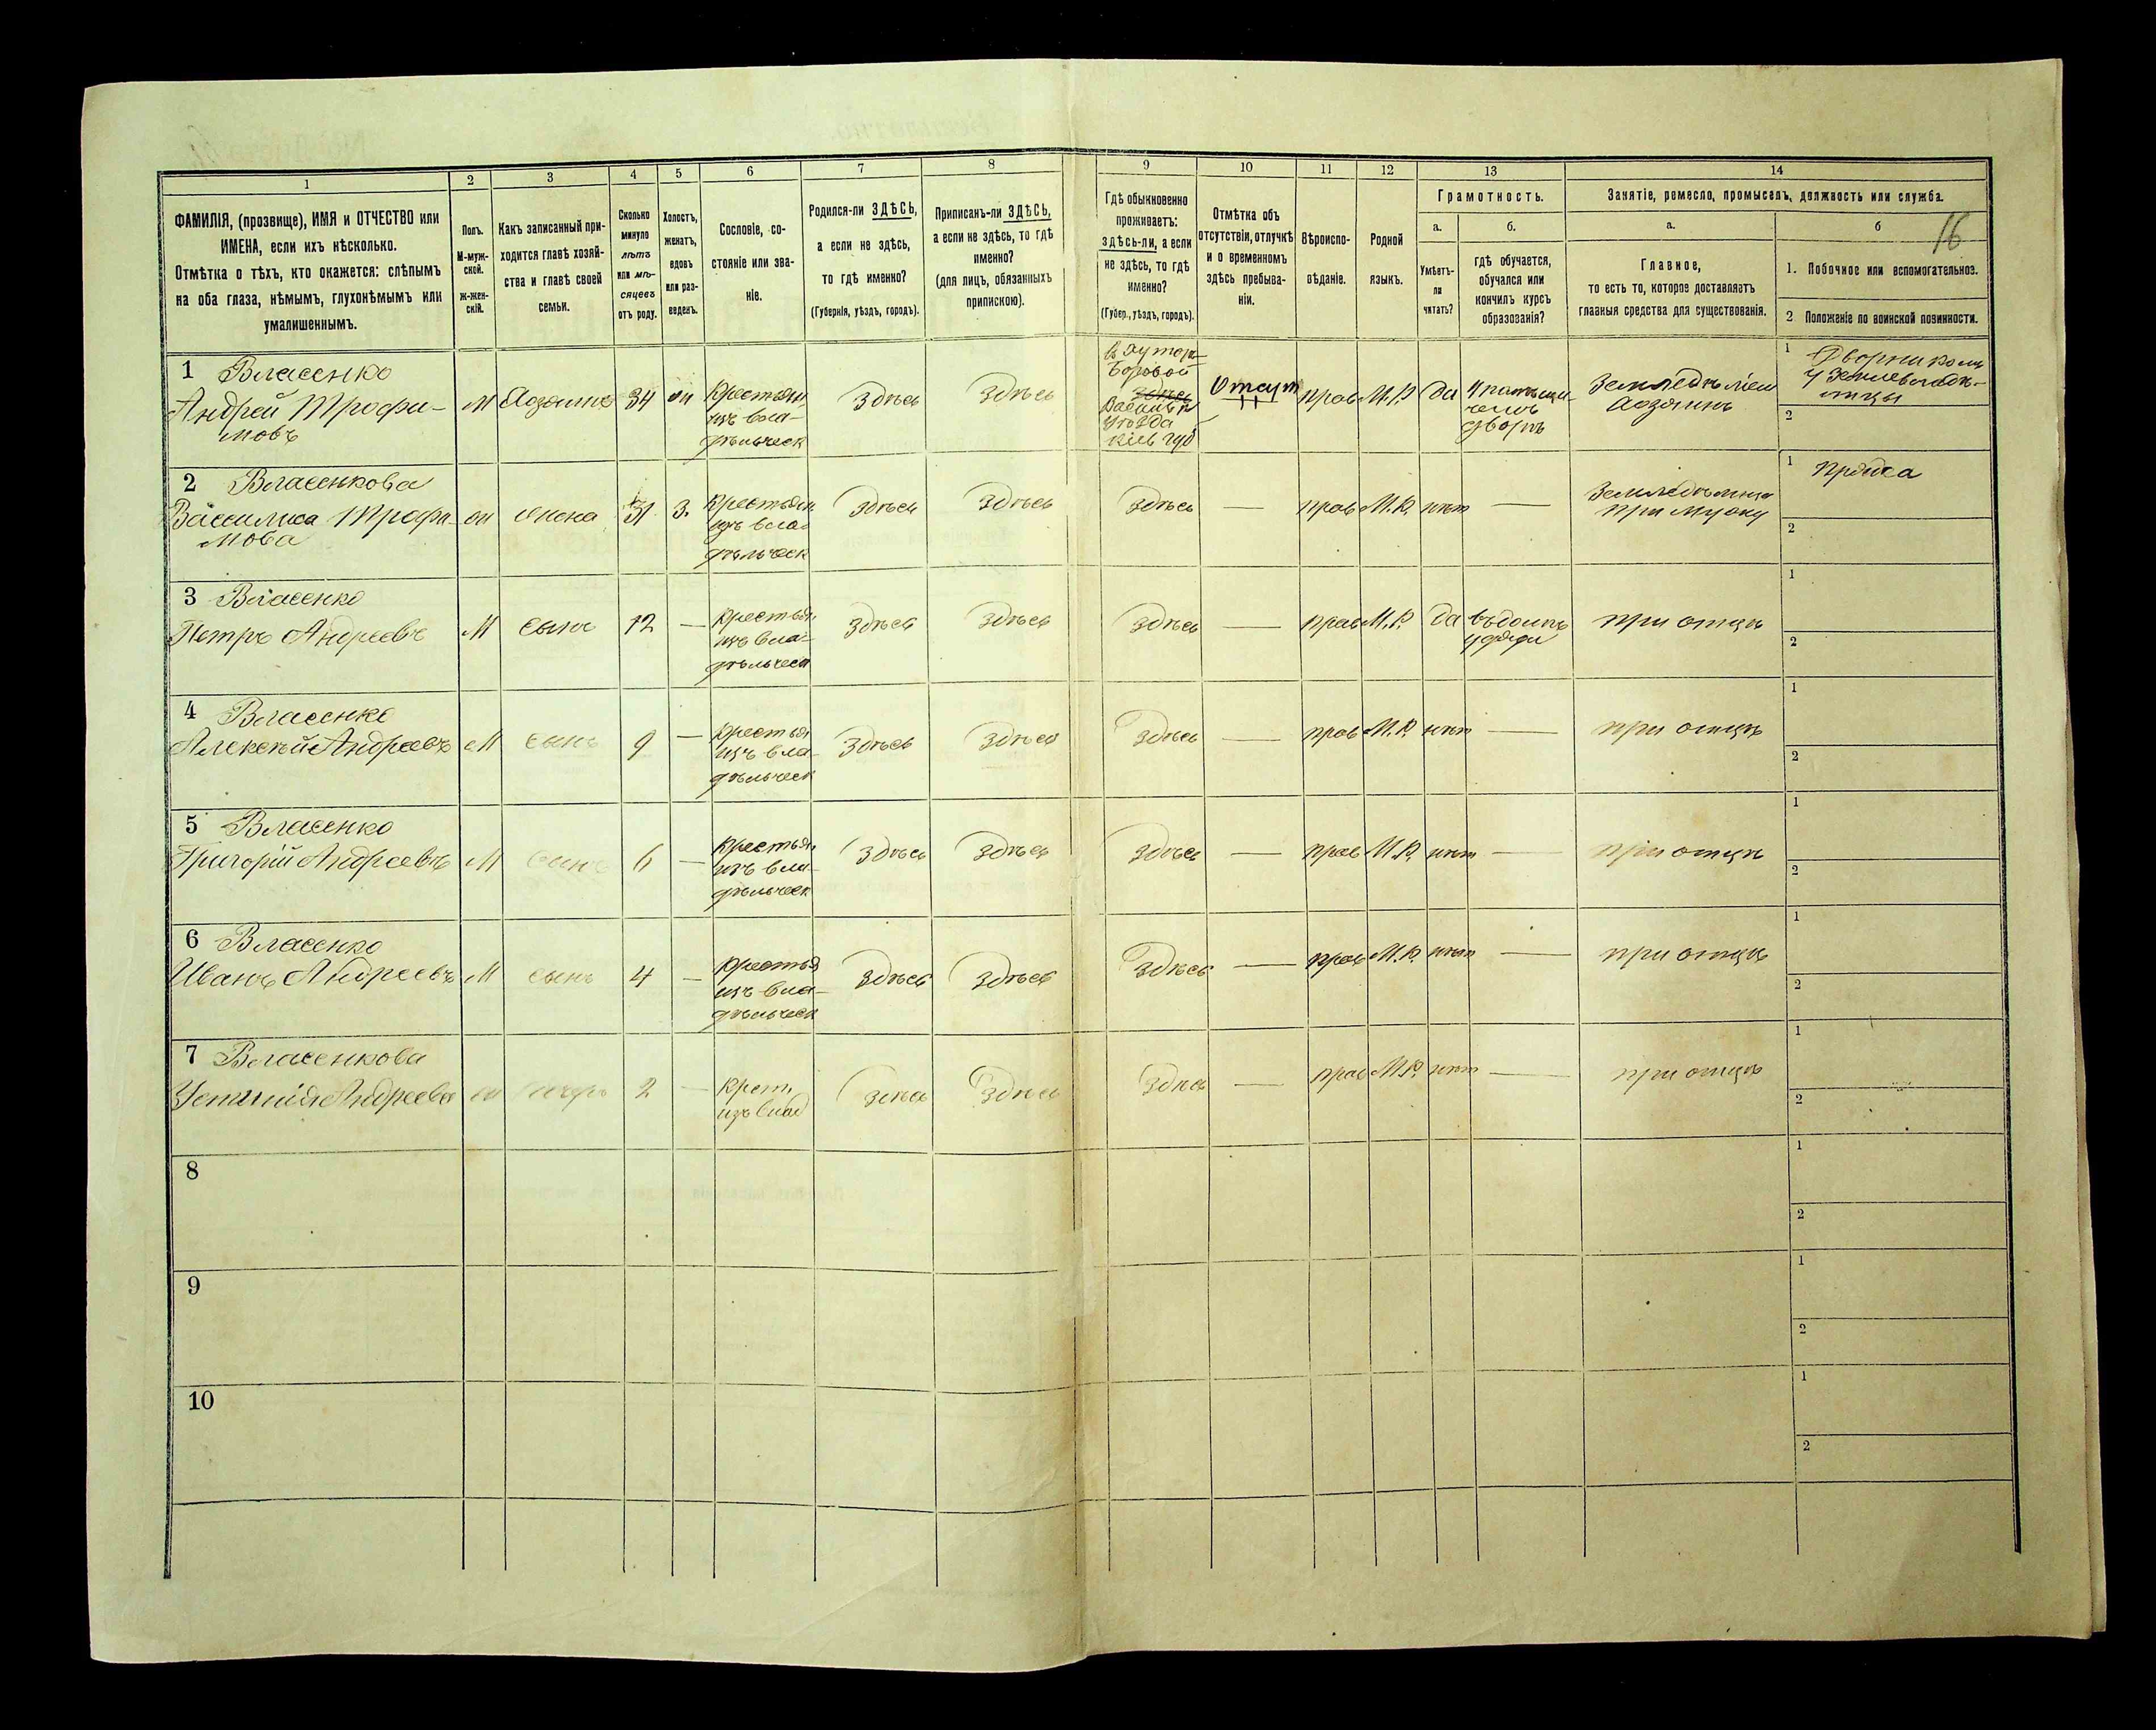 16
1
2
3
4
5
6
7
8
9
10
11
12
13
14
ФАМИЛІЯ, (прозвище), ИМЯ и ОТЧЕСТВО или
ИМЕНА, если ихъ нѣсколько.
Отмѣтка о тѣхъ, кто окажется: слѣпымъ
на оба глаза, нѣмымъ, глухонѣмымъ или
умалишеннымъ.
Полъ.
М-муж-
ской.
ж-жен-
скій.
Какъ записанный при-
ходится главѣ хозяй-
ства и главѣ своей
семьи.
Сколько
минуло
лѣтъ
или мѣ-
сяцевъ
отъ роду.
Холостъ,
женатъ,
вдовъ
или раз-
веденъ.
Сословіе, со-
стояніе или зва-
ніе.
Родился-ли ЗДѢСЬ,
а если не здѣсь,
то гдѣ именно?
(Губернія, уѣздъ, городъ).
Приписанъ-ли ЗДѢСЬ,
а если не здѣсь, то гдѣ
именно?
(для лицъ, обязанныхъ
припискою).
Гдѣ обыкновенно
проживаетъ:
здѣсь-ли, а если
не здѣсь, то гдѣ
именно?
(Губер., уѣздъ, городъ).
Отмѣтка объ
отсутствіи, отлучкѣ
и о временномъ
здѣсь пребыва-
ніи.
Вѣроиспо-
вѣданіе.
Родной
языкъ.
Грамотность.
а.
Умѣетъ-
ли
читать?
б.
гдѣ обучается,
обучался или
кончилъ курсъ
образованія?
Занятіе, ремесло, промыселъ, должность или служба.
а.
Главное,
то есть то, которое доставляетъ
главныя средства для существованія.
б
1. Побочное или вспомогательное.
2 Положеніе по воинской повинности.
1 Власенко
Андрей Трофи-
мовъ
М
Хозяинъ
34
жн
Крестьян
изъ вла-
дѣльческ
Здѣсь
Здѣсь
в хутор
Боровой
здѣсь
уѣзда
Кіев губ
Отсут
прав
М.Р.
да
дворѣ
Земледѣліем
Хозяинъ
1 Дворником
у Землевладѣ-
лицы
2
2 Власенкова
Вассилиса Трофи-
мова
ж
жена
31
З.
Крестьян
изъ вла-
дѣльческ
Здѣсь
Здѣсь
Здѣсь
—
прав
М.Р.
нѣт
—
при мужу
1 Пряжа
2
3 Власенко
Петръ Андреевъ
М
сынъ
12
—
Крестьян
изъ вла-
дѣльческ
Здѣсь
Здѣсь
Здѣсь
—
прав
М.Р.
да
при отцѣ
1
2
4 Власенко
Алексѣй Андреевъ
М
сынъ
9
—
Крестьян
изъ вла-
дѣльческ
Здѣсь
Здѣсь
Здѣсь
—
прав
М.Р.
нѣт
—
при отцѣ
1
2
5 Власенко
Григорій Андреевъ
М
сынъ
6
—
Крестьян
изъ вла-
дѣльческ
Здѣсь
Здѣсь
Здѣсь
—
прав
М.Р.
нѣт
—
при отцѣ
1
2
6 Власенко
Иванъ Андреевъ
М
сынъ
4
—
Крестья
изъ вла-
дѣльческ
Здѣсь
Здѣсь
Здѣсь
—
прав
М.Р.
нѣт
—
при отцѣ
1
2
7 Власенкова
Устинія Андреева
ж
дочерь
2
—
Крест.
изъ влад
Здѣсь
Здѣсь
Здѣсь
—
прав
М.Р.
нѣт
—
при отцѣ
1
2
8
1
2
9
1
2
10
1
2